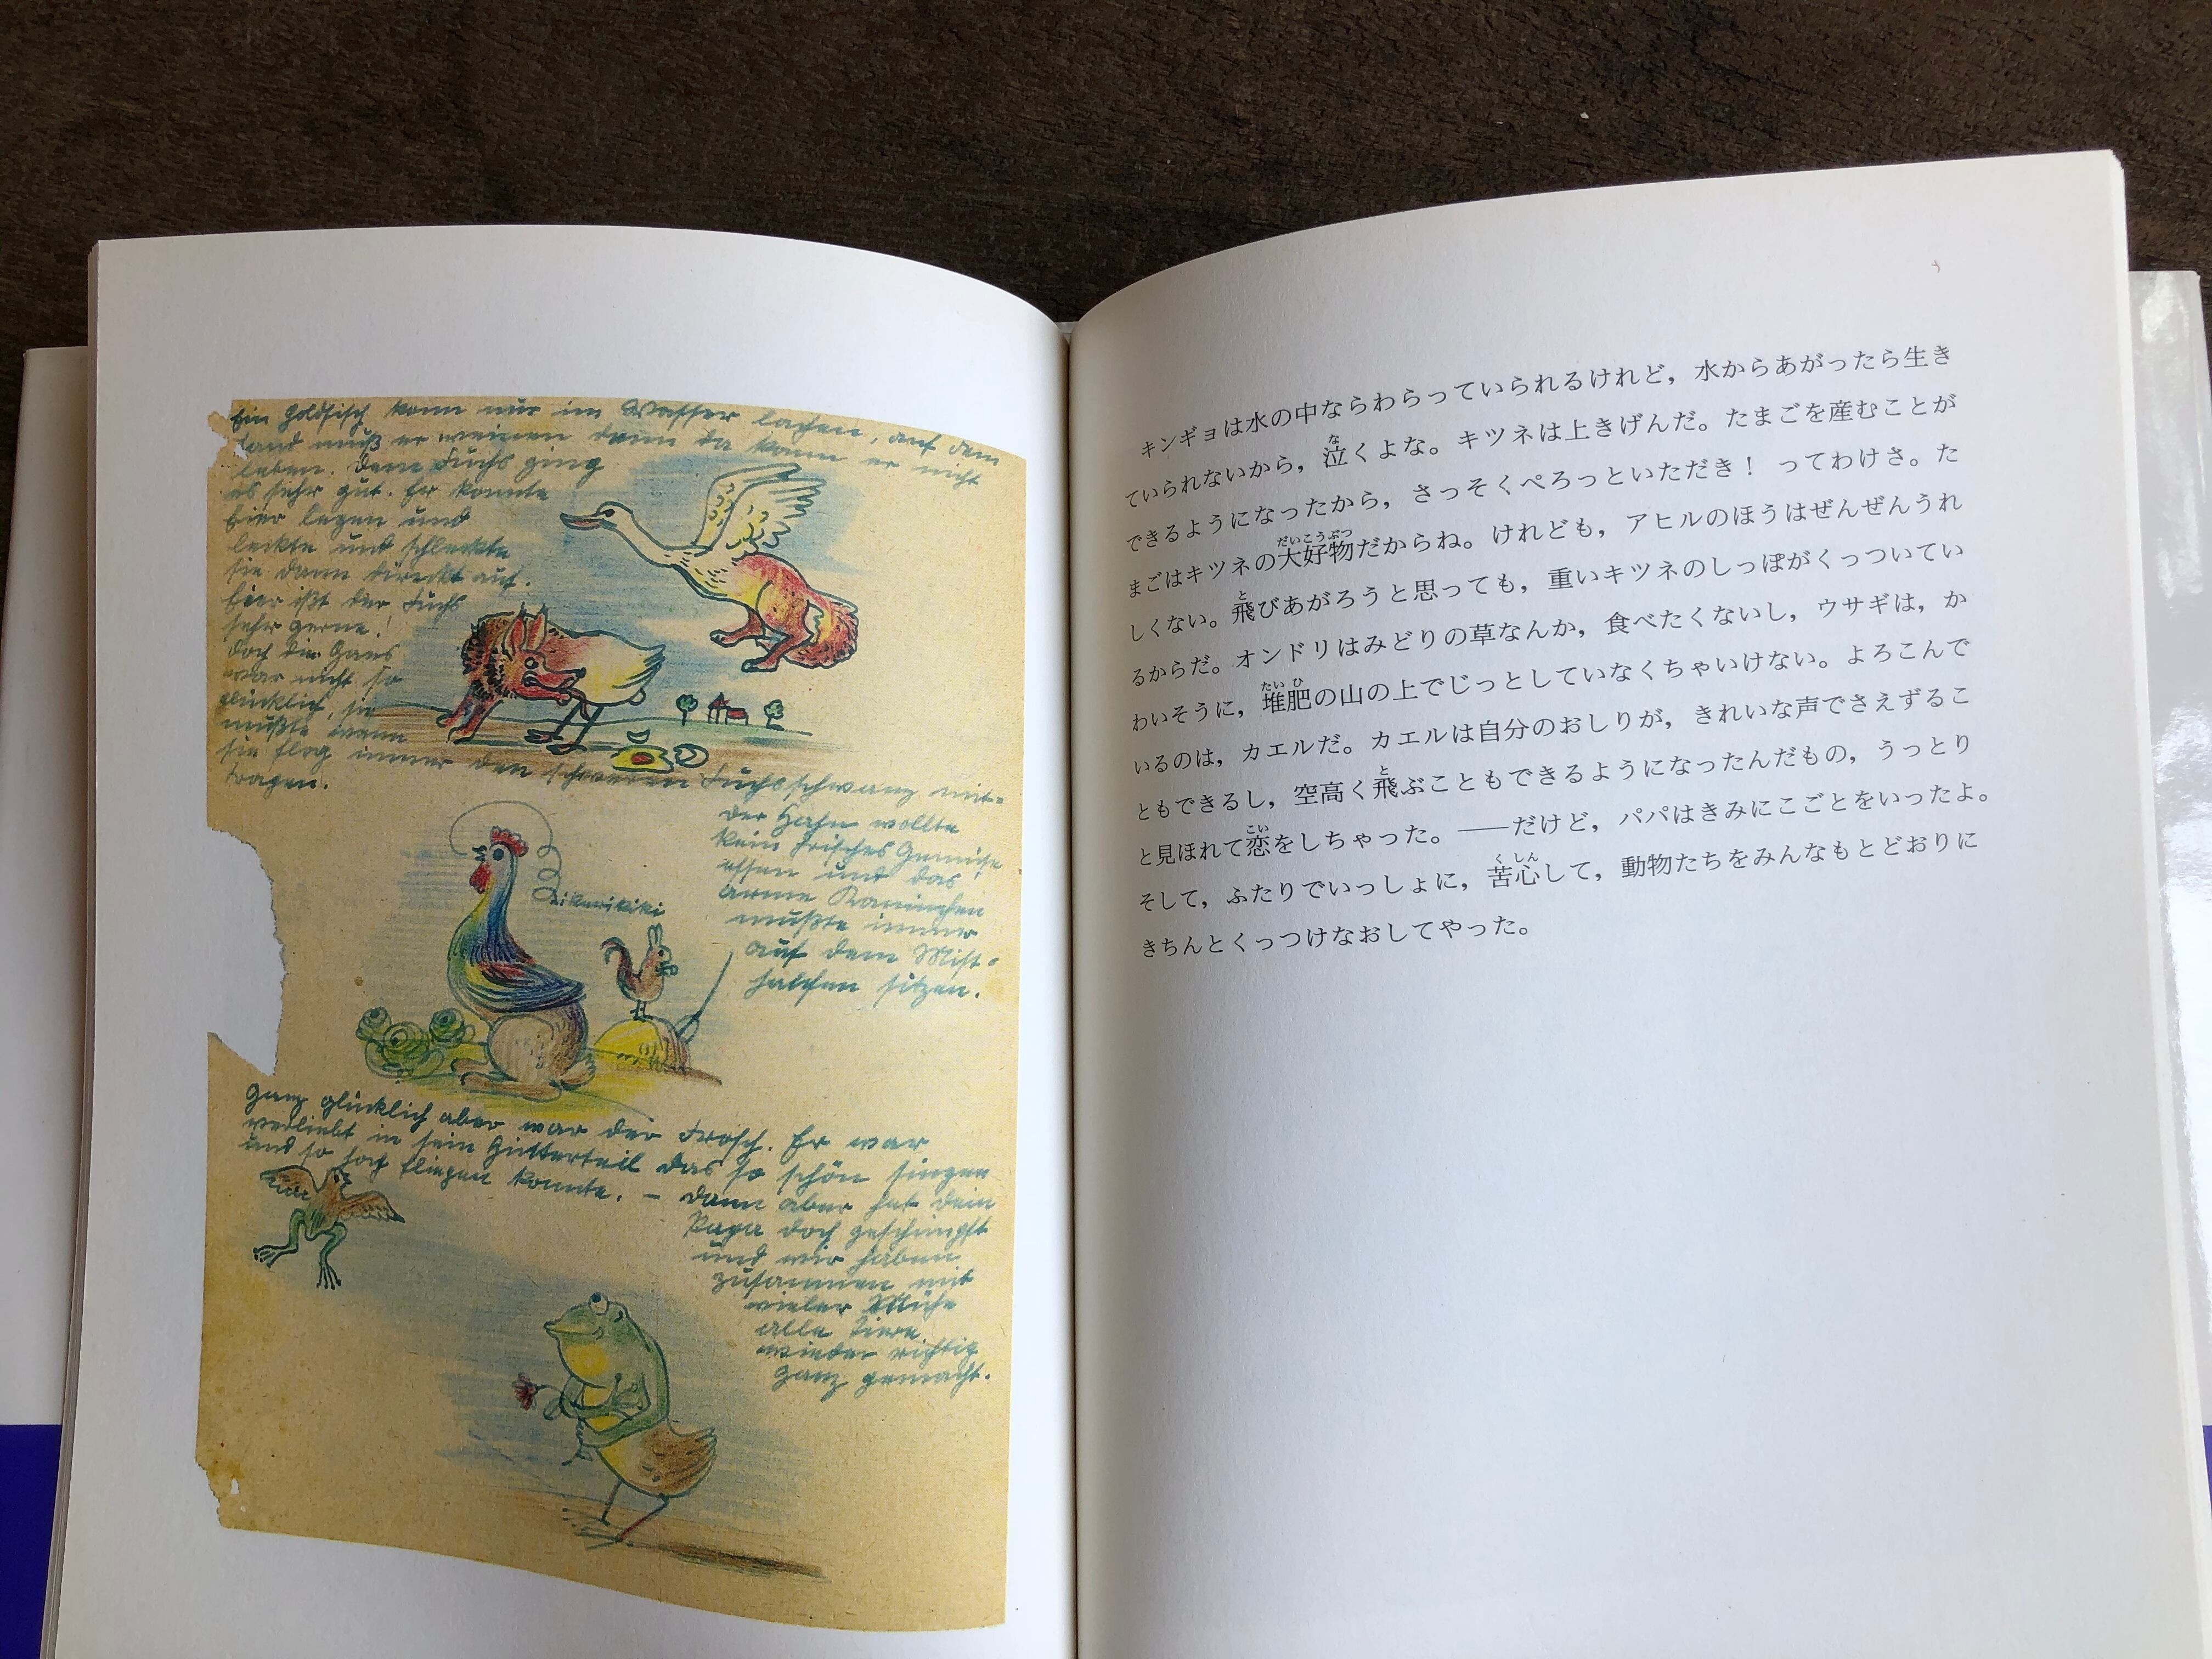 Ein Goldfisch kann nur im Wasser lachen, auf dem
Land muß er weinen denn da kann er nicht
leben. Dem Fuchs ging
es sehr gut. Er konnte
Eier legen und
leckte und schleckte
sie dann direckt auf.
Eier ißt der Fuchs
sehr gerne!
doch die Gans
war nicht so
glücklich, sie
mußte wenn
sie flog immer den schweren Fuchsschwanz mit-
tragen.
der Hahn wollte
kein frisches Gemüse
essen und das
arme Kaninchen
mußte immer
auf dem Mist-
haufen sitzen.
Kikerikiki
Ganz glücklich aber war der Frosch. Er war
verliebt in sein Hinterteil das so schön singen
und so hoch fliegen konnte. – dann aber hat dein
Papa doch geschimpft
und wir haben
zusammen mit
vieler Mühe
alle Tiere
wieder richtig
ganz gemacht.
キンギョは水の中ならわらっていられるけれど，水からあがったら生き
ていられないから，泣くよな。キツネは上きげんだ。たまごを産むことが
できるようになったから，さっそくぺろっといただき！ ってわけさ。た
まごはキツネの大好物だからね。けれども，アヒルのほうはぜんぜんうれ
しくない。飛びあがろうと思っても，重いキツネのしっぽがくっついてい
るからだ。オンドリはみどりの草なんか，食べたくないし，ウサギは，か
わいそうに，堆肥の山の上でじっとしていなくちゃいけない。よろこんで
いるのは，カエルだ。カエルは自分のおしりが，きれいな声でさえずるこ
ともできるし，空高く飛ぶこともできるようになったんだもの，うっとり
と見ほれて恋をしちゃった。――だけど，パパはきみにこごとをいったよ。
そして，ふたりでいっしょに，苦心して，動物たちをみんなもとどおりに
きちんとくっつけなおしてやった。